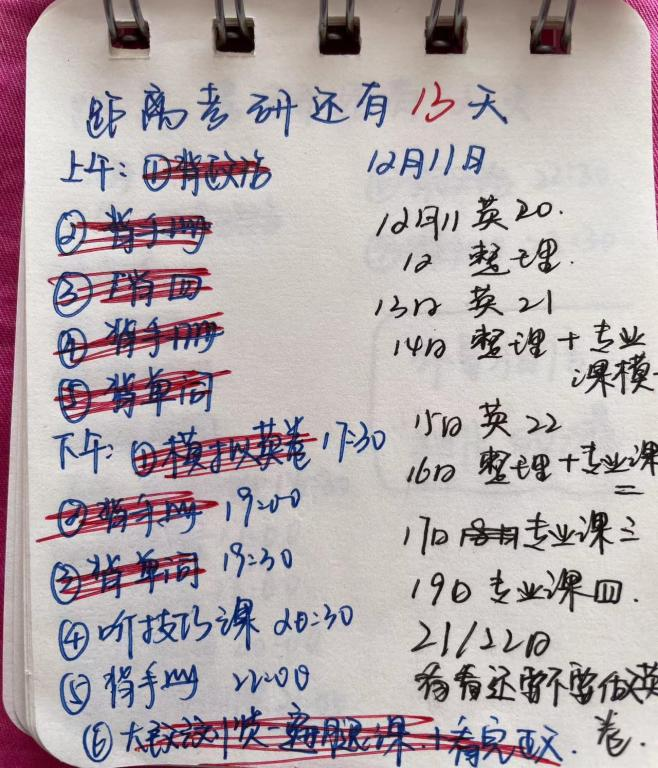 距离考研还有13天
上午：①背政治
12月11日
②背手册
③肖四
④背手册
⑤背单词
下午：①模拟英卷 17:30
②背手册 19:00
③背单词 19:30
④听技巧课 20:30
⑤背手册 22:00
⑥ 课+看完
12月11 英20.
12 整理.
13日 英21
14日 整理+专业
课模
15日 英22
16日 整理+专业课
17日 专业课三
19日 专业课四.
21/22日
看看还要不要做英
卷.